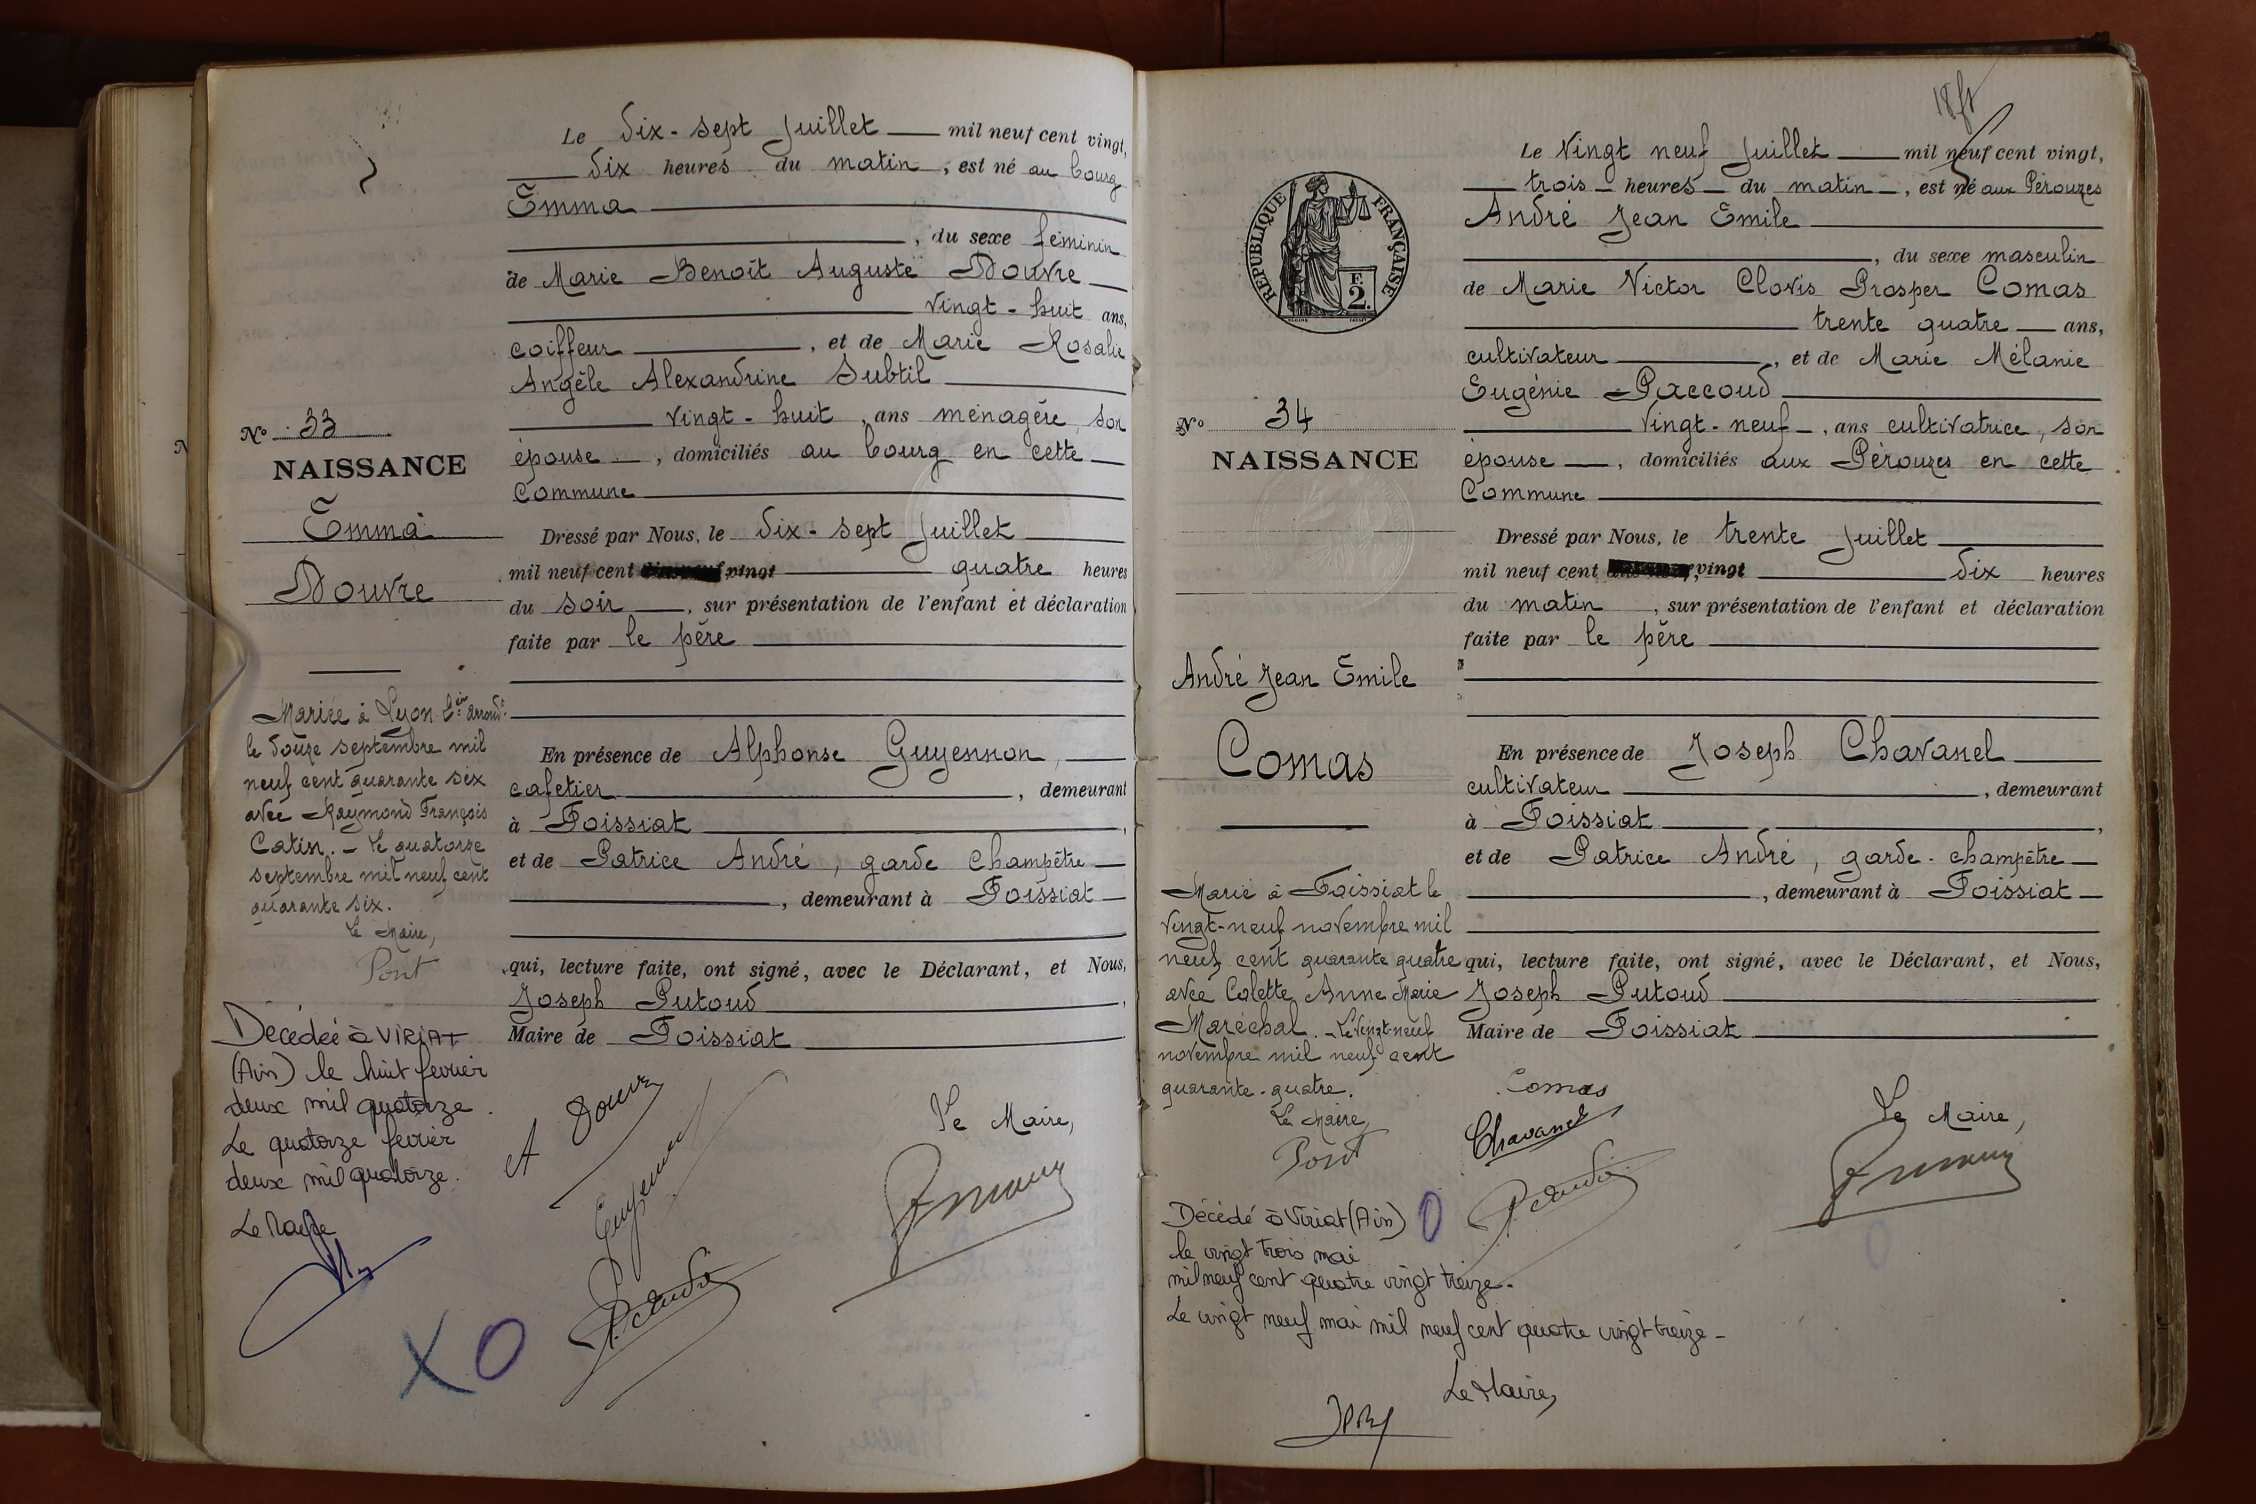 Le dix-sept Juillet mil neuf cent vingt,
dix heures du matin, est né au bourg
Emma
, du sexe féminin
de Marie Benoît Auguste Douvre
vingt-huit ans,
coiffeur, et de Marie Rosalie
Angèle Alexandrine Subtil
vingt-huit, ans ménagère, son
épouse, domiciliés au bourg en cette
Commune
Dressé par Nous, le dix-sept Juillet
mil neuf cent vingt quatre heures
du soir, sur présentation de l'enfant et déclaration
faite par le père
En présence de Alphonse Guyennon,
cafetier, demeurant
à Foissiat,
et de Patrice André, garde champêtre
, demeurant à Foissiat
qui, lecture faite, ont signé, avec le Déclarant, et Nous,
Joseph Putoud,
Maire de Foissiat
Le Maire,
A Douvre
Guyennon
P. André
No 33
NAISSANCE
Emma
Douvre
Mariée à Lyon 6ème arrondt
le douze septembre mil
neuf cent quarante six
avec Raymond François
Catin. - Le quatorze
septembre mil neuf cent
quarante six.
Le Maire,
Pont
Décédée à VIRIAT
(Ain) le huit février
deux mil quatorze.
Le quatorze février
deux mil quatorze.
Le Maire
X O
18
Le vingt neuf Juillet mil neuf cent vingt,
trois heures du matin, est né aux Pérouzes
André Jean Emile
, du sexe masculin
de Marie Victor Clovis Prosper Comas
trente quatre ans,
cultivateur, et de Marie Mélanie
Eugénie Paccoud
vingt-neuf, ans cultivatrice, son
épouse, domiciliés aux Pérouzes en cette
Commune
Dressé par Nous, le trente Juillet
mil neuf cent vingt dix heures
du matin, sur présentation de l'enfant et déclaration
faite par le père
En présence de Joseph Chavanel
cultivateur, demeurant
à Foissiat,
et de Patrice André, garde-champêtre
, demeurant à Foissiat
qui, lecture faite, ont signé, avec le Déclarant, et Nous,
Joseph Putoud
Maire de Foissiat
Comas
Chavanel
P. André
Le Maire,
REPUBLIQUE FRANÇAISE
F.
2.
No 34
NAISSANCE
André Jean Emile
Comas
Marié à Foissiat le
vingt-neuf novembre mil
neuf cent quarante quatre
avec Colette Anne Marie
Maréchal. - Le vingt-neuf
novembre mil neuf cent
quarante-quatre.
Le Maire,
Pont
Décédé à Viriat (Ain) O
le vingt trois mai
mil neuf cent quatre vingt treize.
Le vingt neuf mai mil neuf cent quatre vingt treize -
Le Maire,